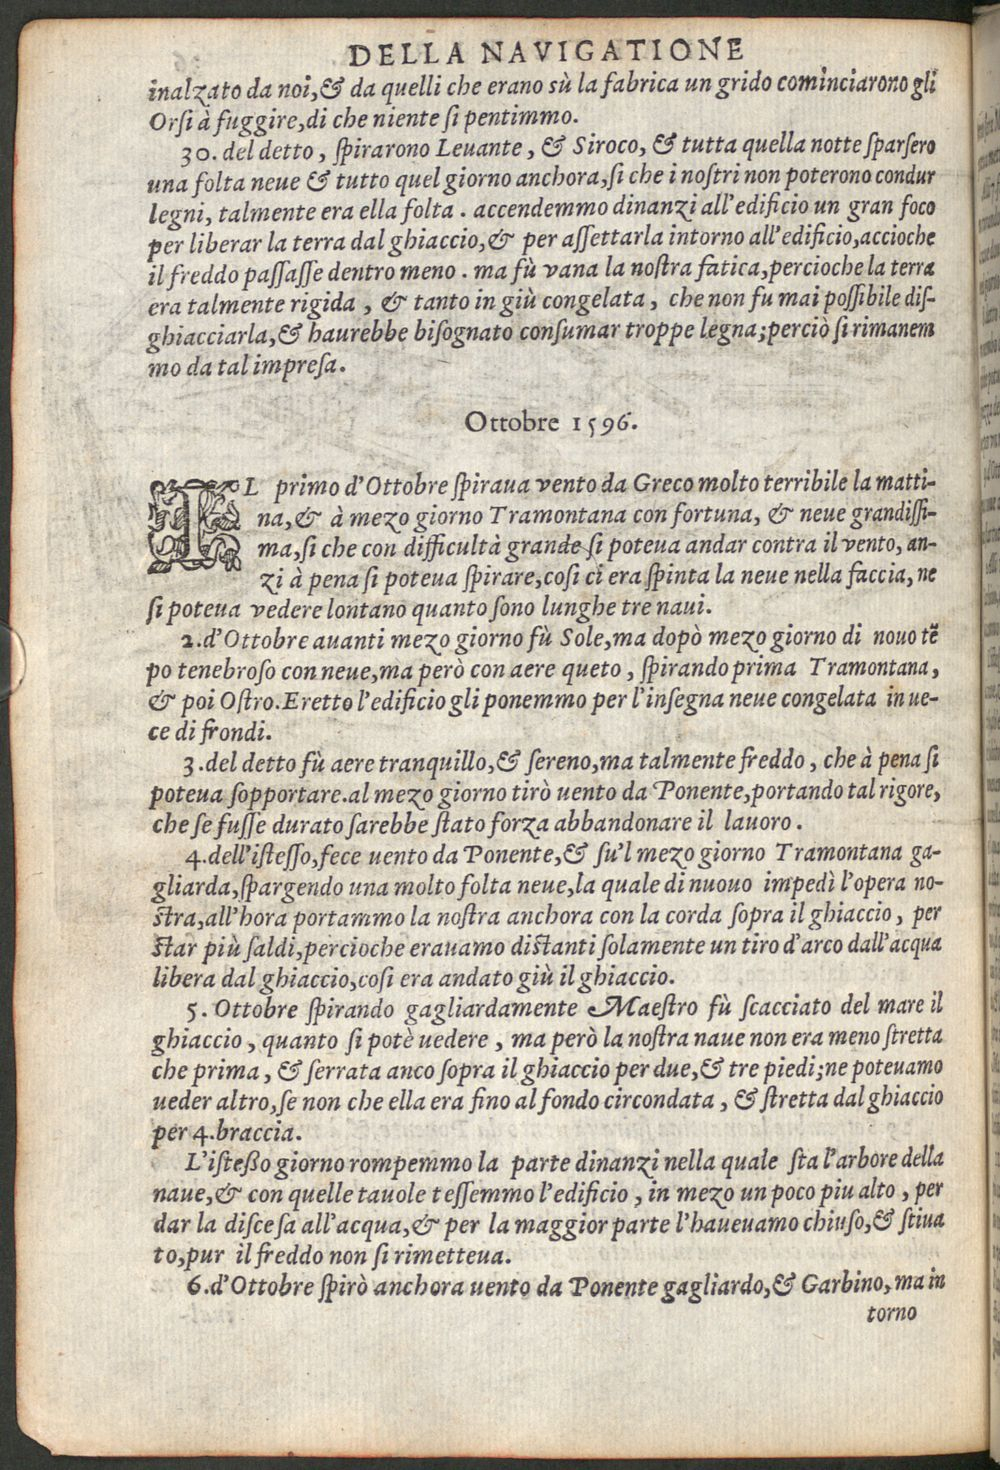 DELLA NAVIGATIONE
inalzato da noi,& da quelli che erano sù la fabrica un grido cominciarono gli
Orſi à fuggire,di che niente ſi pentimmo.
30. del detto, ſpirarono Leuante, & Siroco, & tutta quella notte ſparſero
una folta neue & tutto quel giorno anchora,ſi che i noſtri non poterono condur
legni, talmente era ella folta. accendemmo dinanzi all'edificio un gran foco
per liberar la terra dal ghiaccio,& per aſſettarla intorno all'edificio,accioche
il freddo paſſaſſe dentro meno. ma fù vana la noſtra fatica,percioche la terra
era talmente rigida, & tanto in giù congelata, che non fu mai poſſibile diſ-
ghiacciarla,& haurebbe biſognato conſumar troppe legna;perciò ſi rimanem
mo da tal impreſa.
Ottobre 1596.
IL primo d'Ottobre ſpiraua vento da Greco molto terribile la matti-
na,& à mezo giorno Tramontana con fortuna, & neue grandiſſi-
ma,ſi che con difficultà grande ſi poteua andar contra il vento, an-
zi à pena ſi poteua ſpirare,coſi ci era ſpinta la neue nella faccia, ne
ſi poteua vedere lontano quanto ſono lunghe tre naui.
2.d'Ottobre auanti mezo giorno fù Sole,ma dopò mezo giorno di nouo tẽ
po tenebroſo con neue,ma però con aere queto, ſpirando prima Tramontana,
& poi Oſtro.Eretto l'edificio gli ponemmo per l'inſegna neue congelata in ue-
ce di frondi.
3.del detto fù aere tranquillo,& ſereno,ma talmente freddo, che à pena ſi
poteua ſopportare.al mezo giorno tirò uento da Ponente,portando tal rigore,
che ſe fuſſe durato ſarebbe ſtato forza abbandonare il lauoro.
4.dell'iſteſſo,fece uento da Ponente,& ſu'l mezo giorno Tramontana ga-
gliarda,ſpargendo una molto folta neue,la quale di nuouo impedì l'opera no-
ſtra,all'hora portammo la noſtra anchora con la corda ſopra il ghiaccio, per
ſtar più ſaldi,percioche erauamo diſtanti ſolamente un tiro d'arco dall'acqua
libera dal ghiaccio,coſi era andato giù il ghiaccio.
5. Ottobre ſpirando gagliardamente Maeſtro fù ſcacciato del mare il
ghiaccio, quanto ſi potè uedere, ma però la noſtra naue non era meno ſtretta
che prima, & ſerrata anco ſopra il ghiaccio per due,& tre piedi;ne poteuamo
ueder altro,ſe non che ella era fino al fondo circondata, & ſtretta dal ghiaccio
per 4.braccia.
L'iſteßo giorno rompemmo la parte dinanzi nella quale ſta l'arbore della
naue,& con quelle tauole teſſemmo l'edificio, in mezo un poco piu alto, per
dar la diſceſa all'acqua,& per la maggior parte l'haueuamo chiuſo,& ſtiua
to,pur il freddo non ſi rimetteua.
6.d'Ottobre ſpirò anchora uento da Ponente gagliardo,& Garbino, ma in
torno